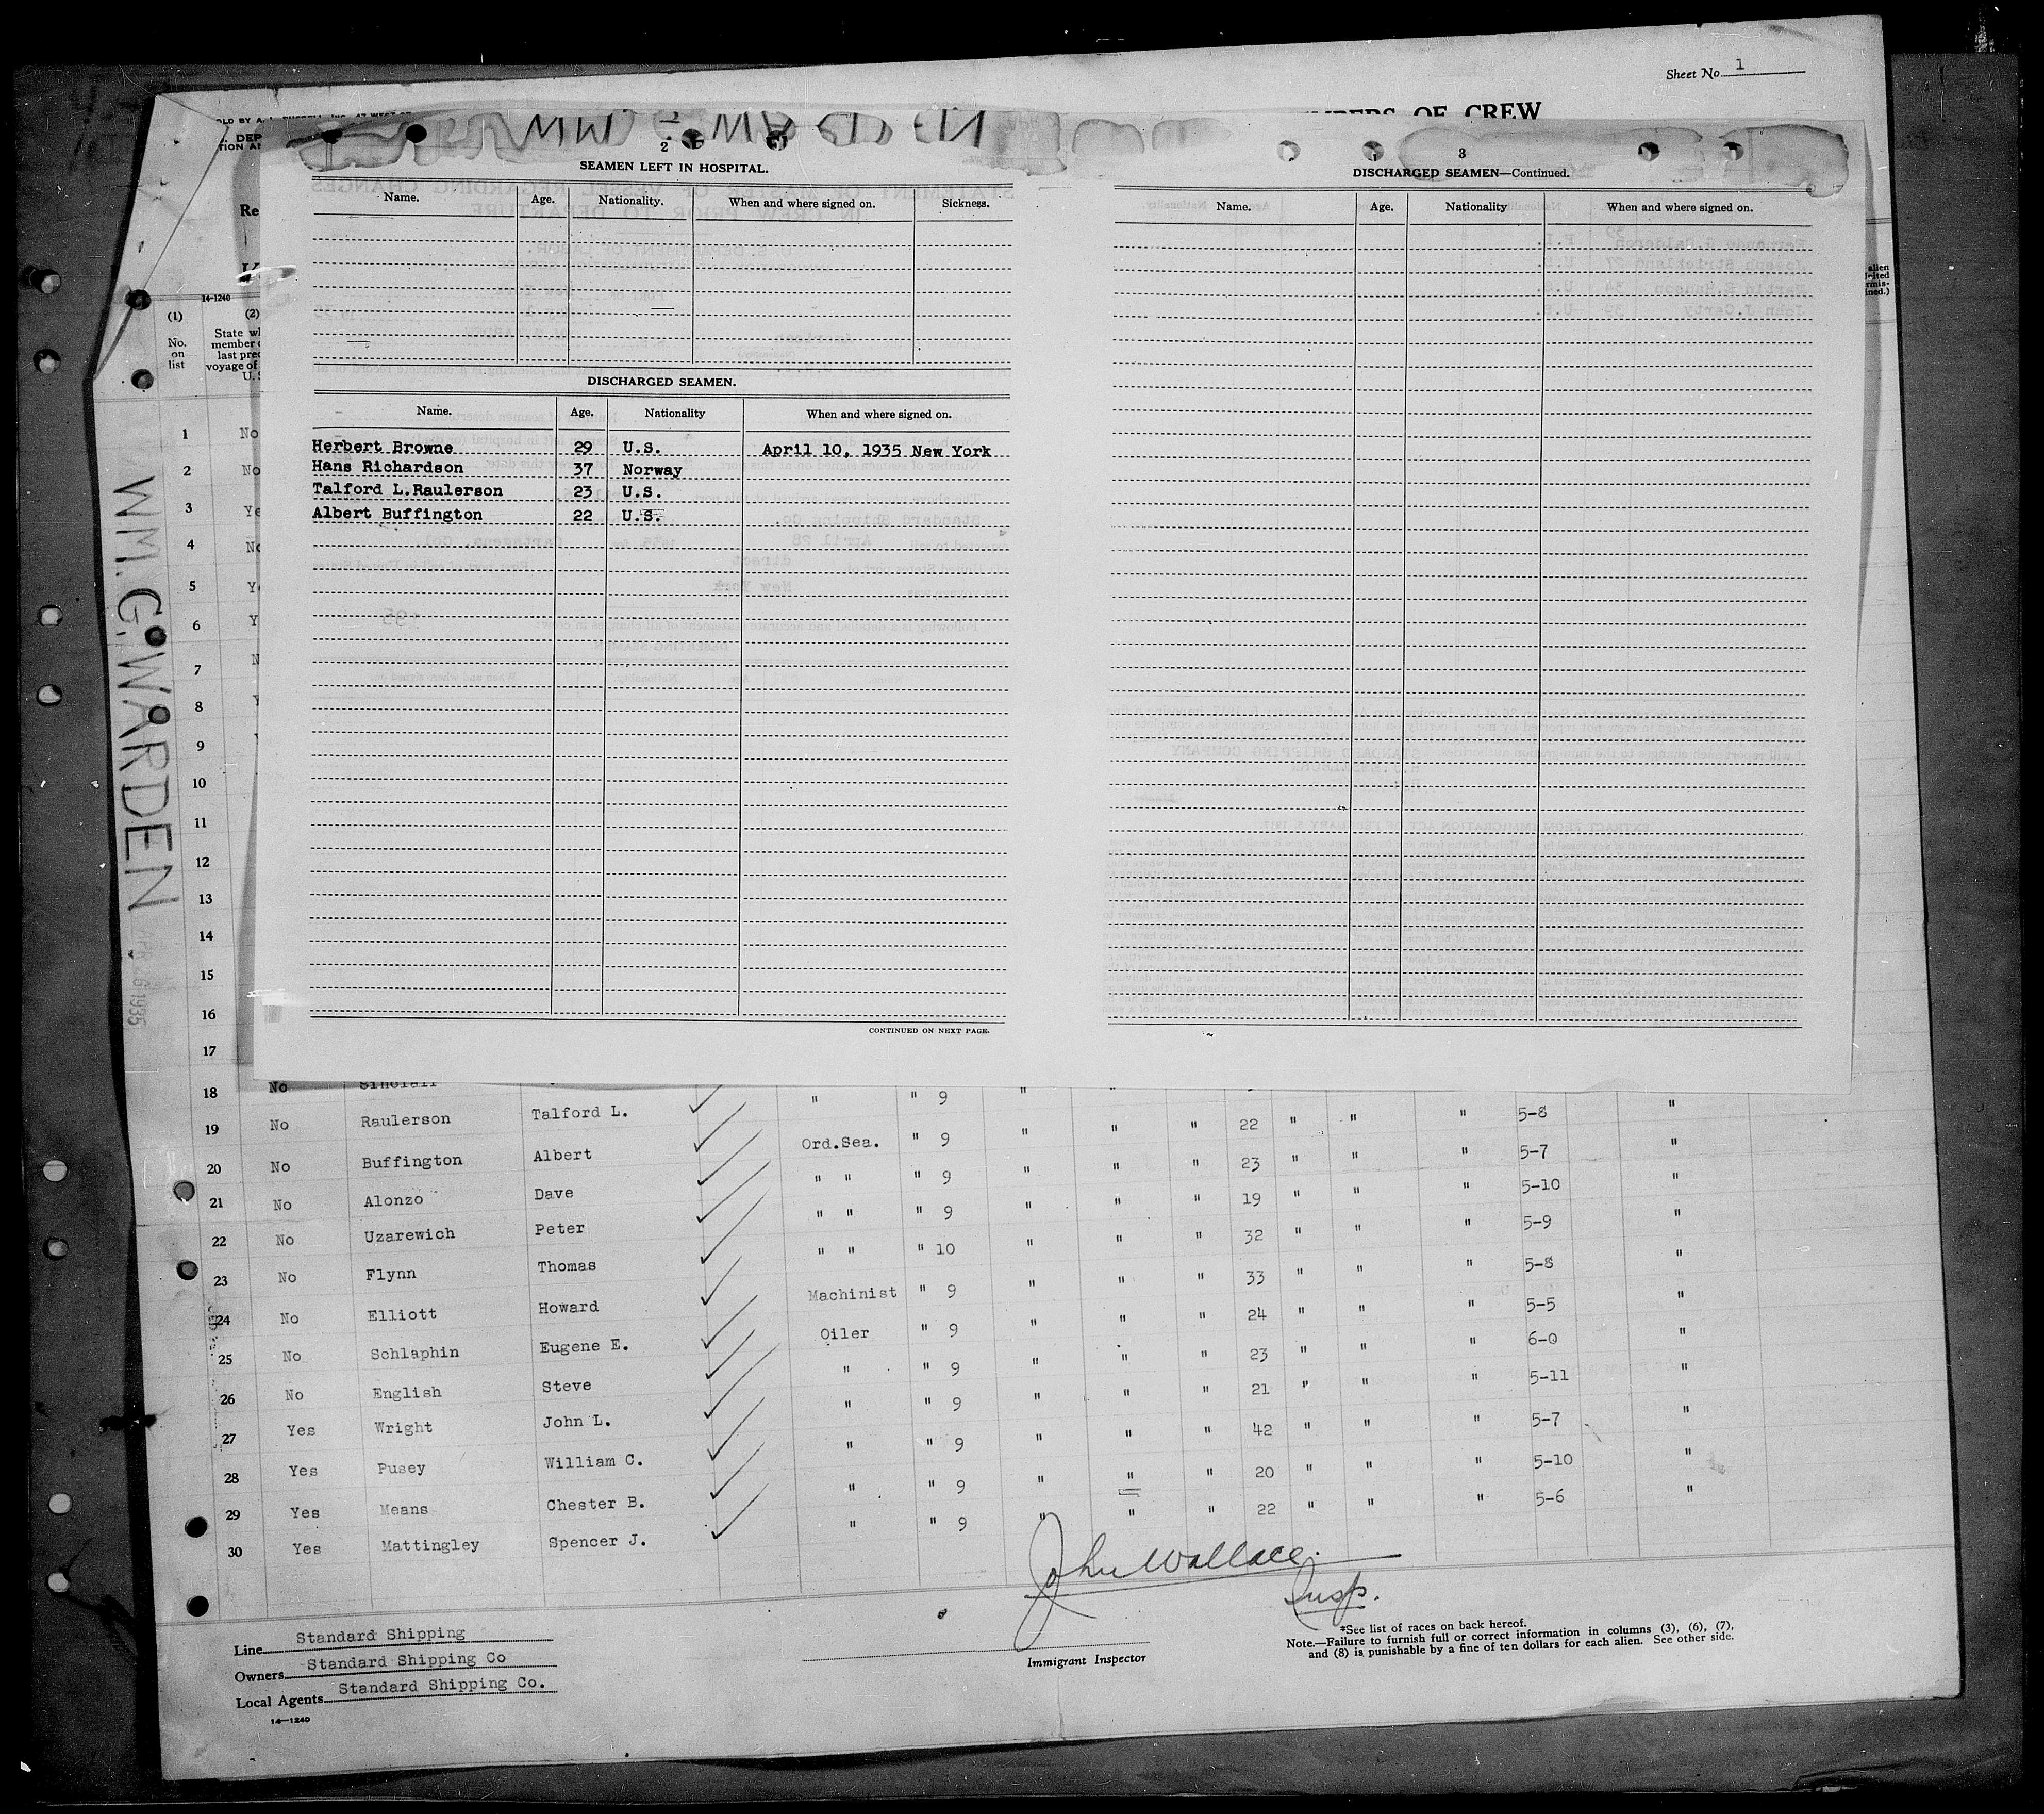 Sheet No. 1
OF CREW
14-1240
(1)
No.
on
list
(2)
2
SEAMEN LEFT IN HOSPITAL.
Name. Age. Nationality. When and where signed on. Sickness.
DISCHARGED SEAMEN.
Name. Age. Nationality When and where signed on.
Herbert Browne 29 U.S. April 10, 1935 New York
Hans Richardson 37 Norway
Talford L.Raulerson 23 U.S.
Albert Buffington 22 U.S.
CONTINUED ON NEXT PAGE.
3
DISCHARGED SEAMEN—Continued.
Name. Age. Nationality When and where signed on.
WM. G. WARDEN
1 No
2 No
3 Ye
4 No
5 Ye
6 Y
7 N
8 Y
9
10
11
12
13
14
15
16
17
18 No Sinclair " " 9 " "
19 No Raulerson Talford L. Ord.Sea. " 9 " " " 22 " " " 5-8 "
20 No Buffington Albert " " " 9 " " " 23 " " " 5-7 "
21 No Alonzo Dave " " " 9 " " " 19 " " " 5-10 "
22 No Uzarewich Peter " " " 10 " " " 32 " " " 5-9 "
23 No Flynn Thomas Machinist " 9 " " " 33 " " " 5-8 "
24 No Elliott Howard Oiler " 9 " " " 24 " " " 5-5 "
25 No Schlaphin Eugene E. " " 9 " " " 23 " " " 6-0 "
26 No English Steve " " 9 " " " 21 " " " 5-11 "
27 Yes Wright John L. " " 9 " " " 42 " " " 5-7 "
28 Yes Pusey William C. " " 9 " " " 20 " " " 5-10 "
29 Yes Means Chester B. " " 9 " " " 22 " " " 5-6 "
30 Yes Mattingley Spencer J.
John Wallace.
Insp.
Immigrant Inspector
Line Standard Shipping
Owners Standard Shipping Co
Local Agents Standard Shipping Co.
14—1240
*See list of races on back hereof.
Note.—Failure to furnish full or correct information in columns (3), (6), (7),
and (8) is punishable by a fine of ten dollars for each alien. See other side.